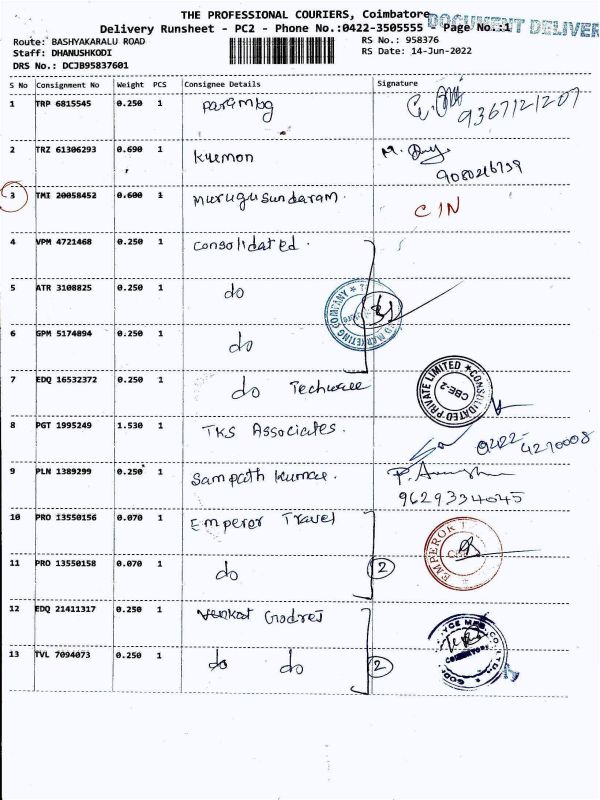 THE PROFESSIONAL COURIERS, Coimbatore
DOCUMENT DELIVER
Delivery Runsheet - PC2 - Phone No.:0422-3505555 - Page No.:1
Route: BASHYAKARALU ROAD RS No.: 958376
Staff: DHANUSHKODI RS Date: 14-Jun-2022
DRS No.: DCJB95837601
S No Consignment No Weight PCS Consignee Details Signature
1 TRP 6815545 0.250 1 9367121207
2 TRZ 61306293 0.690 1 Kuemon
3 TMI 20058452 0.600 1 Murugusundaram. CIN
4 VPM 4721468 0.250 1 Consolidated.
5 ATR 3108825 0.250 1 do
MARKETING COMPANY
6 GPM 5174094 0.250 1 do
7 EDQ 16532372 0.250 1 do
CONSOLIDATED PRIVATE LIMITED CBE-2
8 PGT 1995249 1.530 1 TKS Associates. 0422-4270008
9 PLN 1389299 0.250 1 Sampath Kumar.
9629334045
10 PRO 13550156 0.070 1 Emperor Travel
EMPEROR
11 PRO 13550158 0.070 1 do 2
12 EDQ 21411317 0.250 1 Venkat Godrej
COIMBATORE
13 TVL 7094073 0.250 1 do do 2